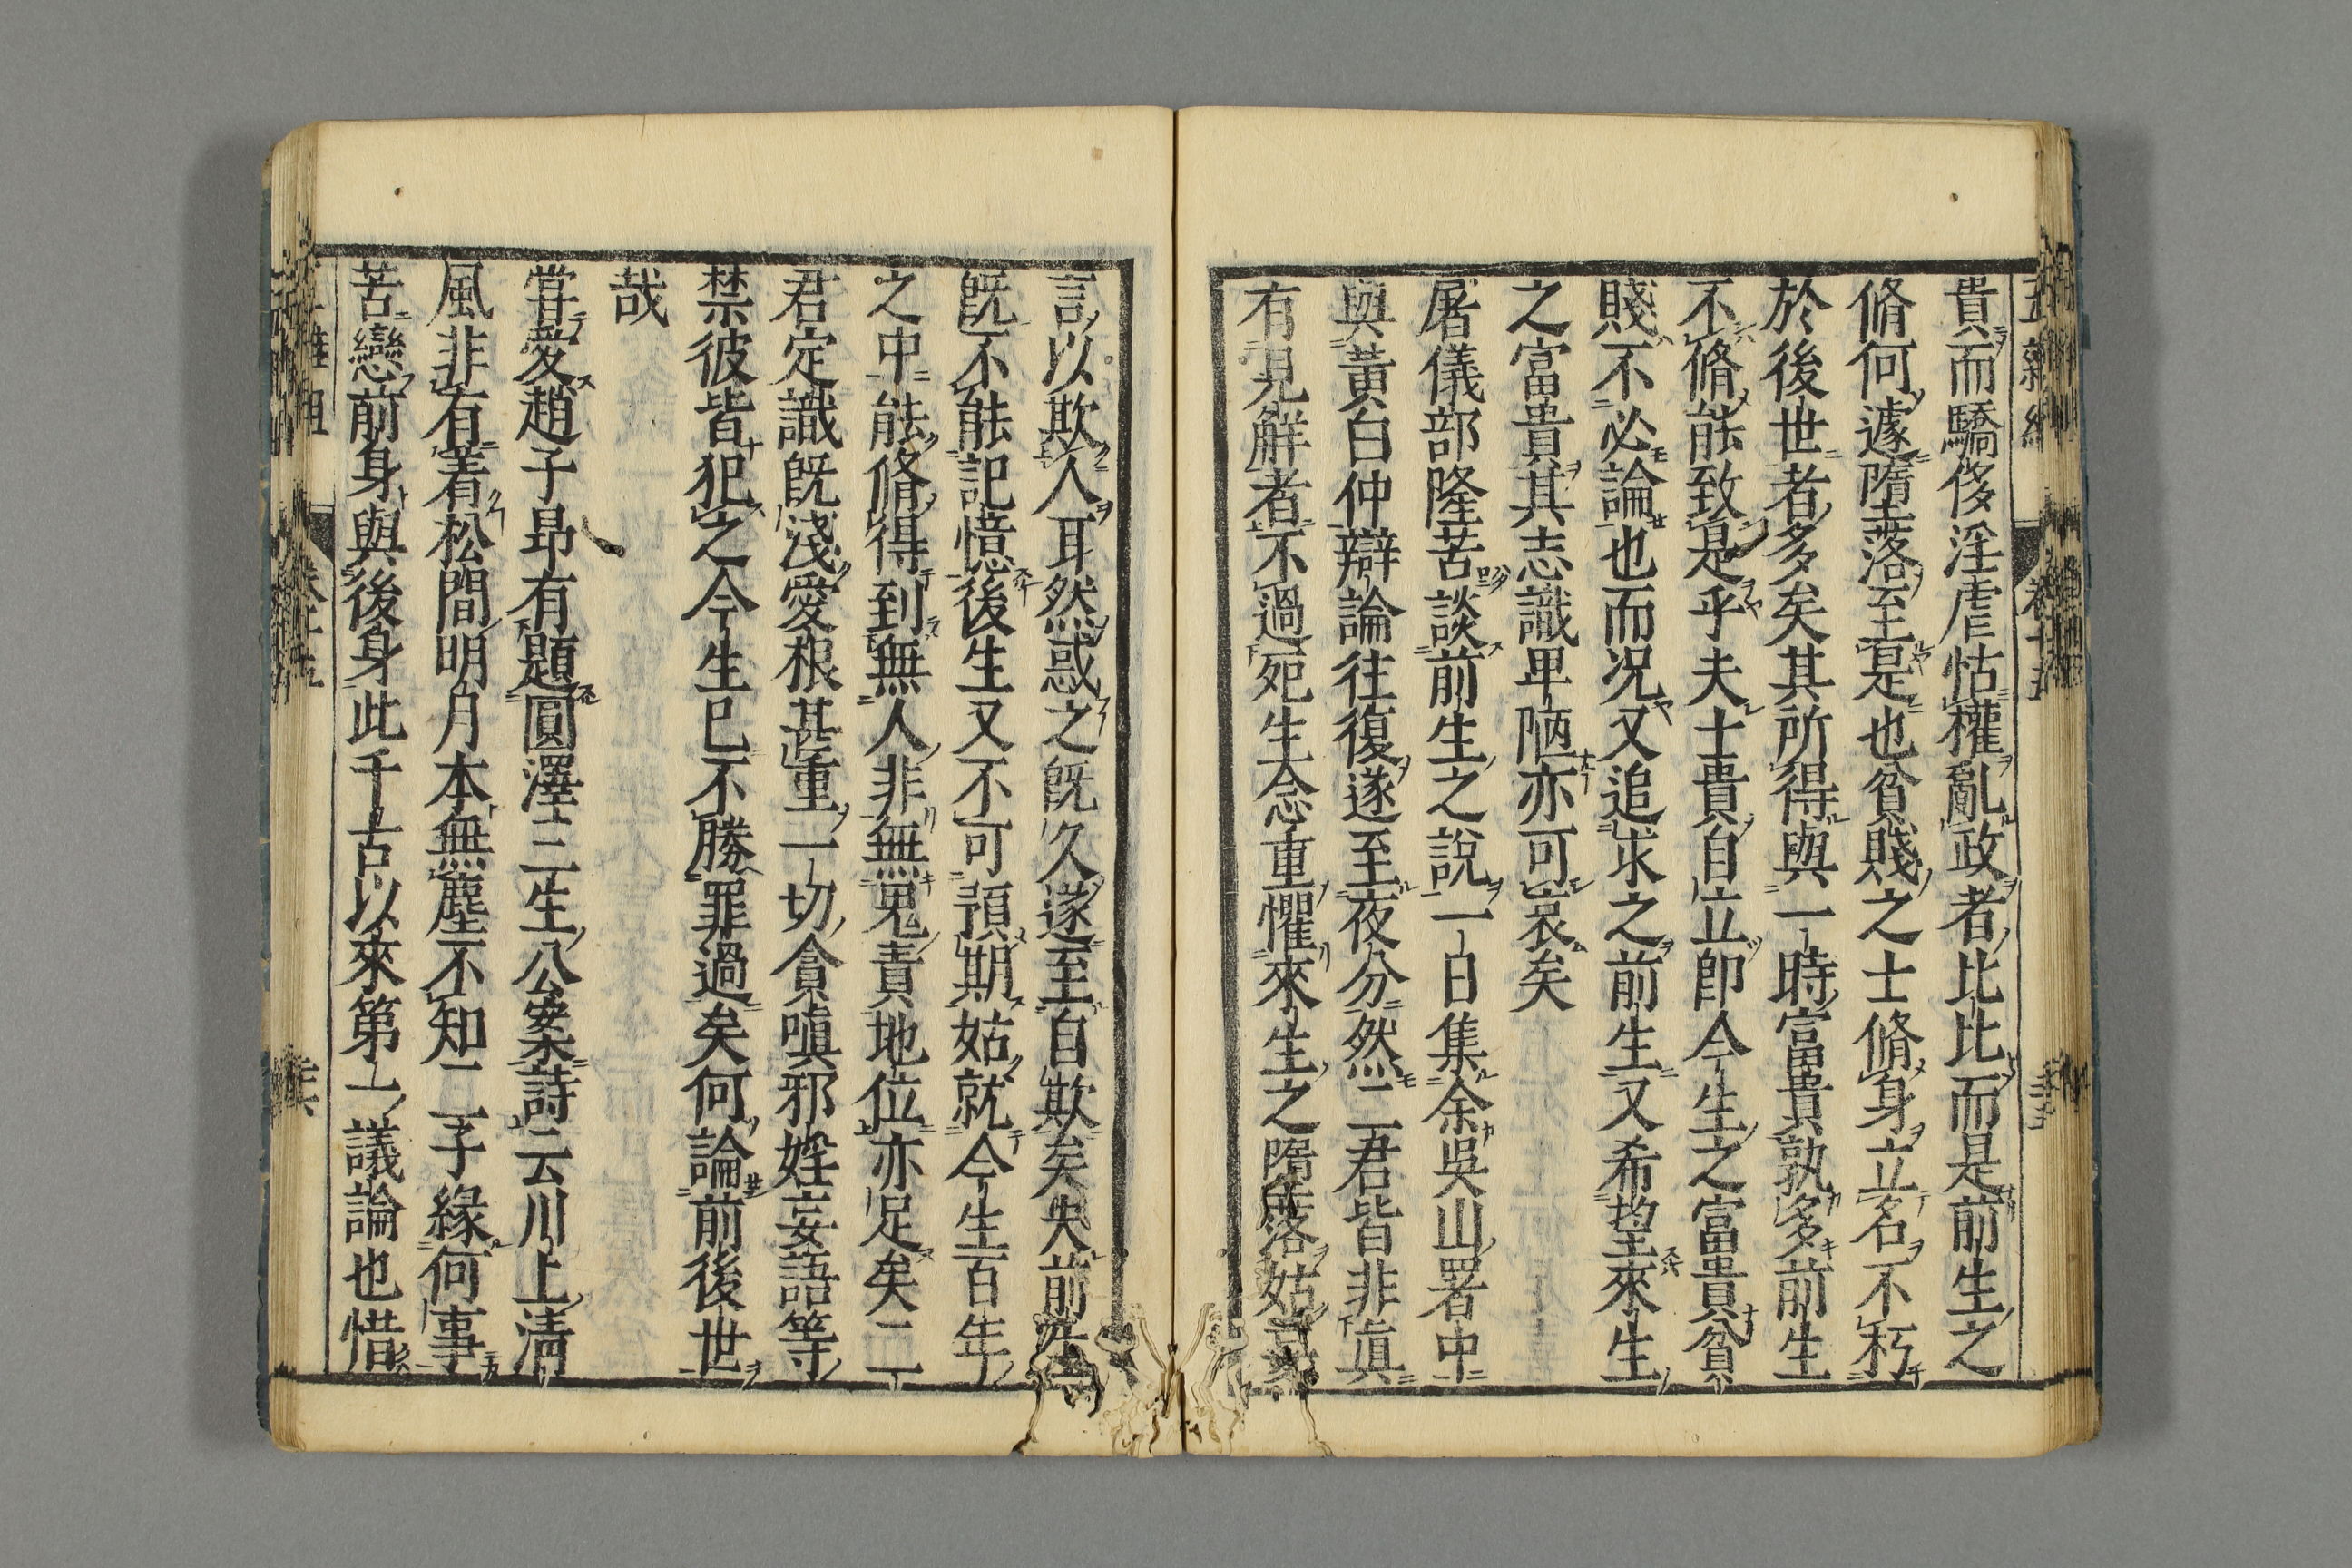 貴而驕侈淫虐怙權亂政者比比而是前生之
脩何遽隋落至是也貧賤之士脩身立名不朽
於後世者多矣其所得與一時富貴孰多前生
不脩能致是乎夫士貴自立卽今生之富貴貧
賤不必論也而况又追求之前生又希望來生
之富貴其志識畀陋亦可哀矣
屠儀部隆苦談前生之說一日集余吳山署中
與黃白仲辯論往復遂至夜分然二君皆非眞
有見解者不過死生念重懼來生之隋落姑
言以欺人耳然惑之旣久遂至自欺矣夫前生
旣不能記憶後生又不可預期姑就今生百年
之中能脩得到無人非無鬼責地位亦足矣二
君定識旣淺愛根甚重一切貪嗔邪婬妄語等
禁彼皆犯之今生已不勝罪過矣何論前後世
哉
甞愛趙子昻有題圓澤三生公案詩云川上淸
風非有著松間明月本無塵不知二子緣何事
苦戀前身與後身此千古以來第一議論也惜